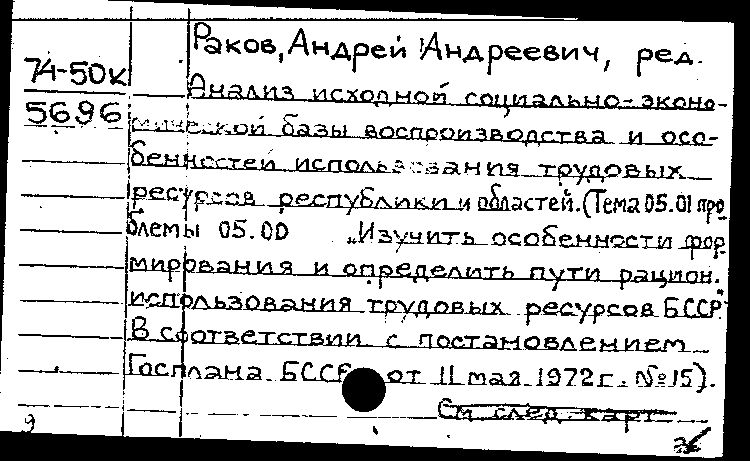 Раков, Андрей Андреевич, ред.
74-50к
Анализ исходной социально-эконо-
5696
мической базы воспроизводства и осо-
бенностей использования трудовых
ресурсов республики и областей. (Тема 05.01 про
блемы 05.00 „Изучить особенности фор
мирования и определить пути рацион.
использования трудовых ресурсов БССР"
В соответствии с постановлением
Госплана БССР от 11 мая 1972 г. № 15).
См след. карт
9